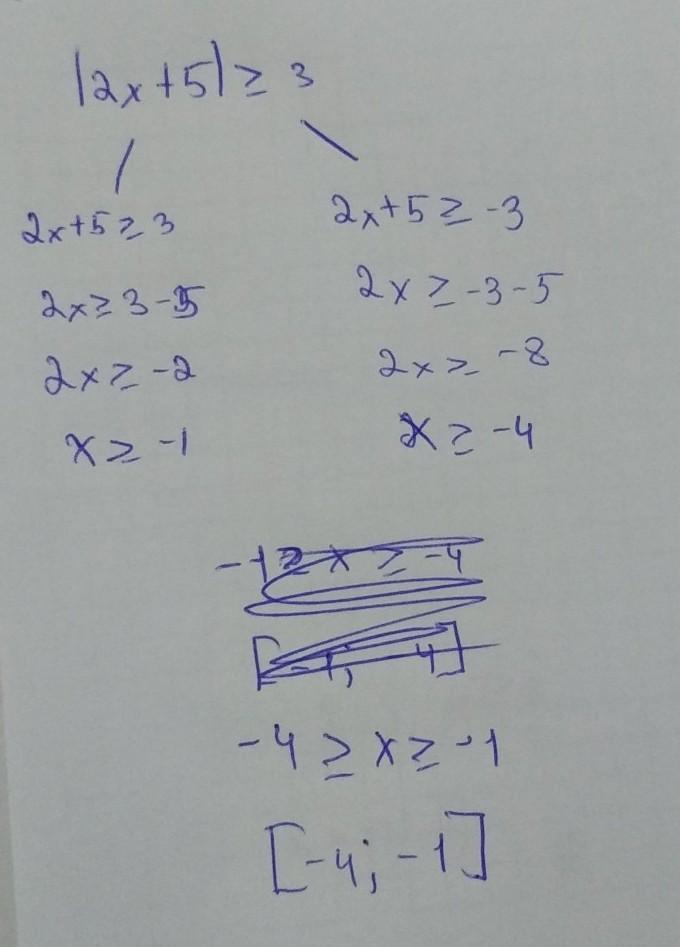 |2x+5| ≥ 3
2x+5 ≥ 3
2x ≥ 3-5
2x ≥ -2
x ≥ -1
2x+5 ≥ -3
2x ≥ -3-5
2x ≥ -8
x ≥ -4
-1 ≥ x ≥ -4
[-1; -4]
-4 ≥ x ≥ -1
[-4; -1]